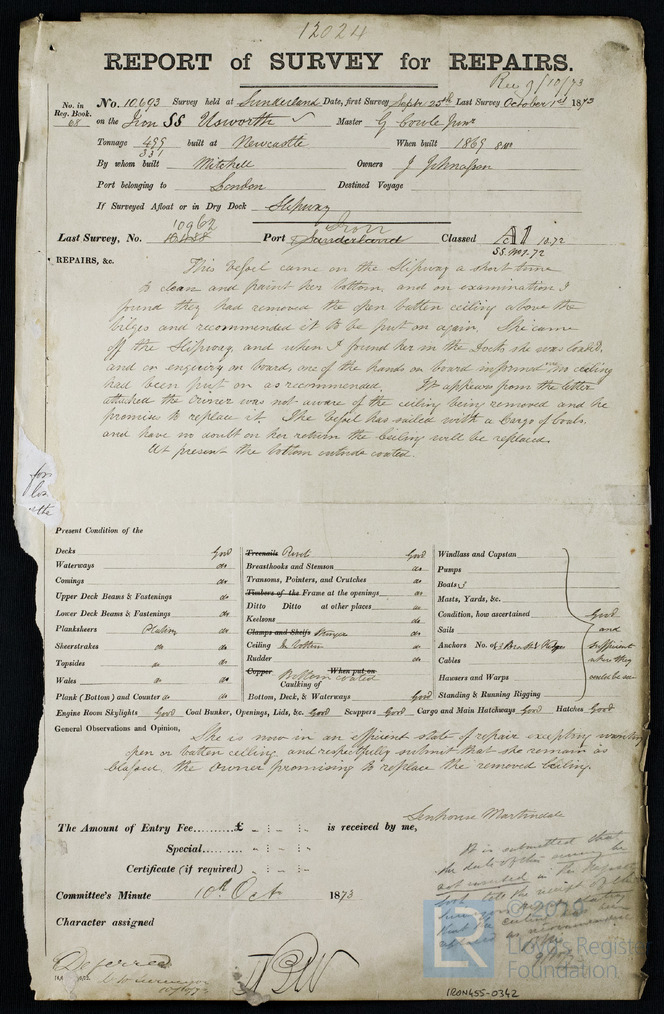 12024
REPORT of SURVEY for REPAIRS.
Rec 9/10/73
No. in Reg. Book. 68
No. 10,693 Survey held at Sunderland Date, first Survey Septr 25th Last Survey October 1st 1873
on the Iron SS Usworth Master G Cowle Junr
Tonnage 499 built at Newcastle When built 1869
331
By whom built Mitchell Owners J Johnasson
Port belonging to London Destined Voyage
If Surveyed Afloat or in Dry Dock Slipway
10962 Iron
Last Survey, No. Port Sunderland Classed A1 10.72
SS. No1-72
REPAIRS, &c. This Vessel came on the Slipway a short time
to clean and paint her bottom, and on examination I
found they had removed the open batten ceiling above the
bilges and recommended it to be put on again. She came
off the Slipway, and when I found her in the Dock she was loaded,
and on enquiry on board, one of the hands on board informed me the ceiling
had been put on as recommended. It appears from the letter
attached the Owner was not aware of the ceiling being removed and he
promises to replace it. The Vessel has sailed with a Cargo of Coals,
and have no doubt on her return the Ceiling will be replaced.
At present the bottom outside coated.
Present Condition of the
Decks Good
Waterways do
Comings do
Upper Deck Beams & Fastenings do
Lower Deck Beams & Fastenings do
Planksheers Plating do
Sheerstrakes do do
Topsides do do
Wales do do
Plank (Bottom) and Counter do do
Treenails Rivets Good
Breasthooks and Stemson do
Transoms, Pointers, and Crutches do
Timbers of the Frame at the openings do
Ditto Ditto at other places do
Keelsons do
Clamps and Shelfs Stringer do
Ceiling In bottom do
Rudder do
Copper When put on
Bottom coated
Caulking of
Bottom, Deck, & Waterways Good
Windlass and Capstan
Pumps
Boats 3
Masts, Yards, &c.
Condition, how ascertained Good
Sails and
Anchors No. of 3 sufficient
Cables where they
Hawsers and Warps could be seen
Standing & Running Rigging
Engine Room Skylights Good Coal Bunker, Openings, Lids, &c. Good Scuppers Good Cargo and Main Hatchways Good Hatches Good
General Observations and Opinion, She is now in an efficient state of repair excepting wanting
open or batten ceiling, and respectfully submit that she remain as
Classed, the Owner promising to replace the removed Ceiling.
Senhouse Martindale
The Amount of Entry Fee.........£ is received by me,
Special.........
Certificate (if required)
Committee's Minute 10th Oct 1873
Character assigned
Deferred
It is submitted that
the date of this survey be
not recorded in the Register
Book, till the receipt of the
stating
that the ceiling has been
replaced as recommended
© 2019
LR
Lloyd's Register
Foundation
IRON455-0342